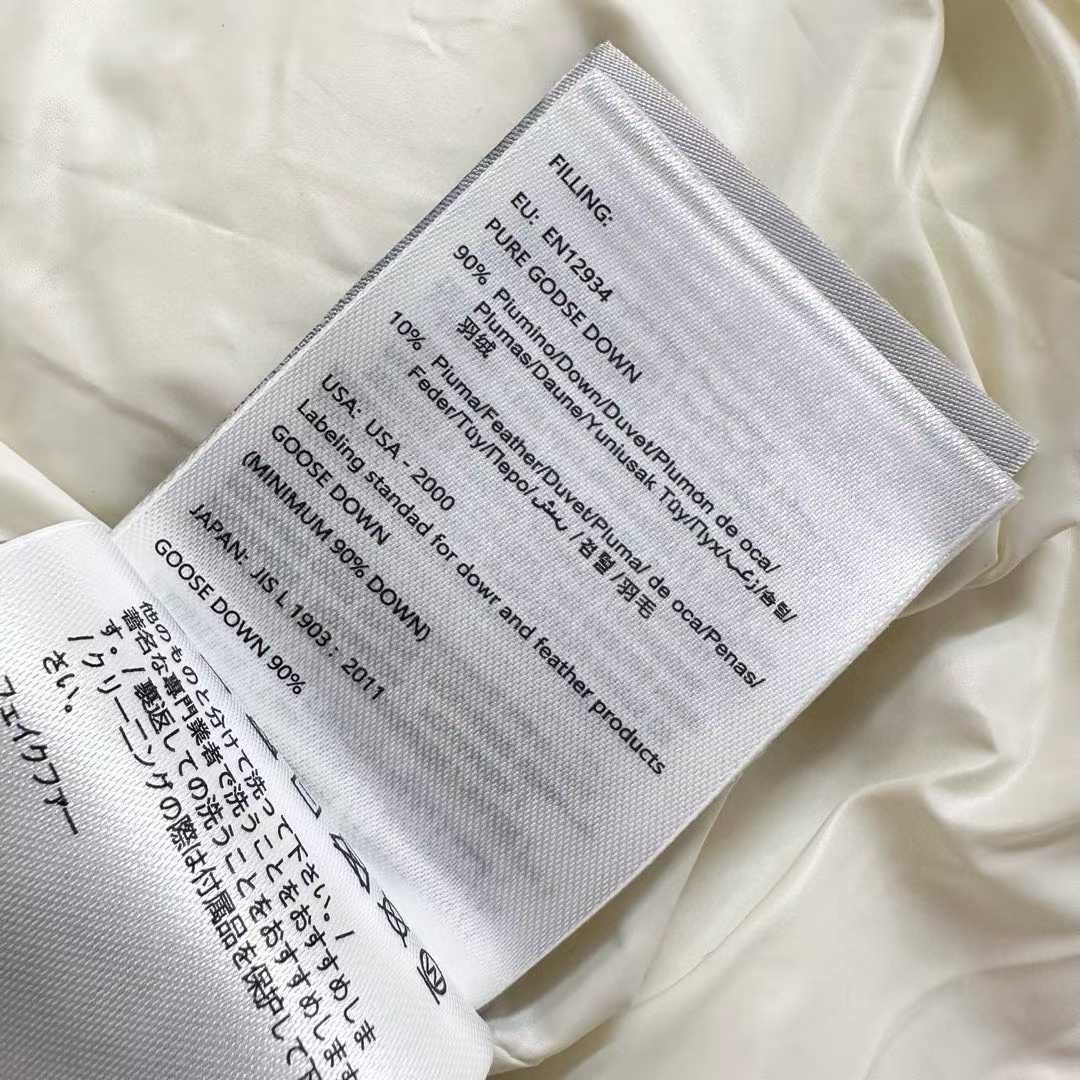 FILLING:
EU: EN12934
PURE GODSE DOWN
90% Plumino/Down/Duvet/Plumón de oca/
Plumas/Daune/Yunlusak Tüy/Пух/زغب/솜털/
羽绒
10% Pluma/Feather/Duvet/Pluma/ de oca/Penas/
Feder/Tüy/Перо/ريش/검털/羽毛
USA: USA - 2000
Labeling standad for dowr and feather products
GOOSE DOWN
(MINIMUM 90% DOWN)
JAPAN: JIS L 1903 : 2011
GOOSE DOWN 90%
他のものと分けて洗って下さい。/
著名な專門業者で洗うことをおすすめしま
す。/ 裏返しての洗うことをおすすめします
/ クリーニングの際は付属品を保护して下
さい。
フェイクファー